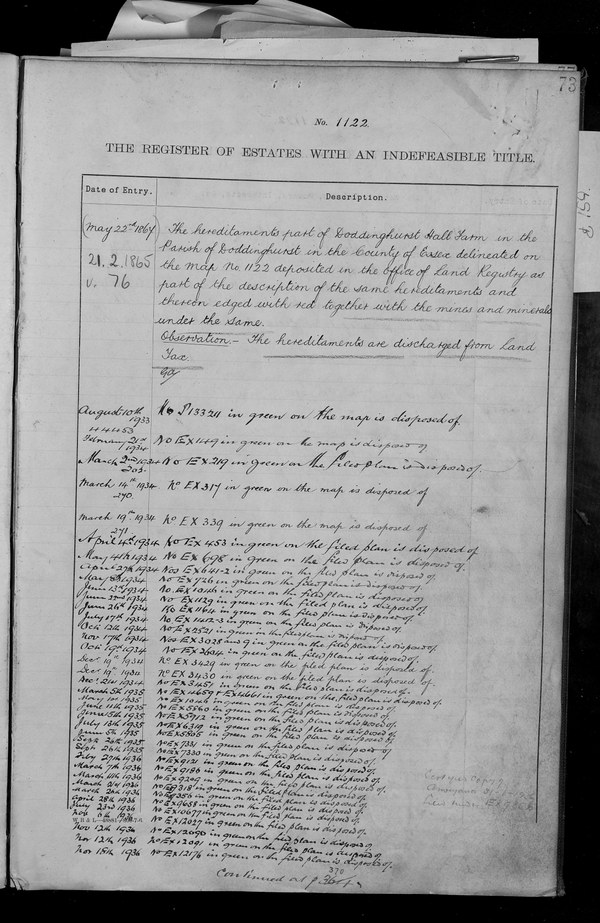 73
No. 1122
THE REGISTER OF ESTATES WITH AN INDEFEASIBLE TITLE.
Date of Entry. Description.
(May 22nd 1867) The hereditaments part of Doddinghurst Hall Farm in the
21.2.1865 Parish of Doddinghurst in the County of Essex delineated on
v. 76 the Map No 1122 deposited in the Office of Land Registry as
part of the description of the same hereditaments and
thereon edged with red together with the mines and minerals
under the same.
Observation.- The hereditaments are discharged from Land
Tax.
August 10th 1933 No P133211 in green on the map is disposed of
February 21st 1934 No EX149 in green on the map is disposed of
March 2nd 1934 No EX219 in green on the filed plan is disposed of.
March 14th 1934 No EX317 in green on the map is disposed of
270
March 19th 1934 No EX 339 in green on the map is disposed of
271
April 4th 1934 No EX 453 in green on the filed plan is disposed of
May 4th 1934 No EX 698 in green on the filed plan is disposed of.
April 27th 1934 Nos EX641-2 in green on the filed plan is disposed of
May 8th 1934 No EX726 in green on the filed plan is disposed of.
June 13th 1934 No EX1046 in green on the filed plan is disposed of
June 22nd 1934 No EX1129 in green on the filed plan is disposed of
June 26th 1934 No EX1164 in green on the filed plan is disposed of
July 17th 1934 No EX1412-3 in green on the filed plan is disposed of.
Oct 12th 1934 No EX2521 in green on the filed plan is disposed of
Nov 17th 1934 Nos EX3028 and 9 in green on the filed plan is disposed of.
Oct 19th 1934 No EX2604 in green on the filed plan is disposed of.
Dec 19th 1934 No EX3429 in green on the filed plan is disposed of
Dec 19th 1934 No EX3430 in green on the filed plan is disposed of
Dec 21st 1934 No EX3457 in green on the filed plan is disposed of.
March 5th 1935 in green on the filed plan is disposed of.
1935 in green on the filed plan is disposed of
June 11th 1935 No EX5760 in green on the filed plan is disposed of.
June 15th 1935 No EX5912 in green on the filed plan is disposed of.
July 1935 No EX6319 in green on the filed plan is disposed of.
June 5th 1935 No EX5806 in green on the filed plan is disposed of.
Sept 1935 No EX7331 in green on the filed plan is disposed of
Sept 26th 1935 No EX7330 in green on the filed plan is disposed of.
Feby 29th 1936 No EX9121 in green on the filed plan is disposed of.
March 7th 1936 No EX9186 in green on the filed plan is disposed of.
March 1936 in green on the filed plan is disposed of.
March 1936 in green on the filed plan is disposed of.
March 1936 in green on the filed plan is disposed of
April 28th 1936 No EX9658 in green on the filed plan is disposed of
July 23rd 1936 No EX10677 in green on the filed plan is disposed of.
Nov 1936 No EX12027 in green on the filed plan is disposed of
Nov 12th 1936 No EX12090 in green on the filed plan is disposed of.
Nov 12th 1936 No EX12091 in green on the filed plan is disposed of.
Nov 18th 1936 No EX12176 in green on the filed plan is disposed of.
370
Continued at p